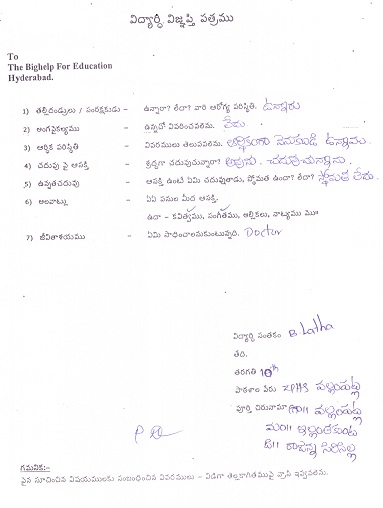 విద్యార్థి విజ్ఞప్తి పత్రము
To
The Bighelp For Education
Hyderabad.
1) తల్లిదండ్రులు / సంరక్షకుడు - ఉన్నారా? లేదా? వారి ఆరోగ్య పరిస్థితి. ఉన్నారు
2) అంగవైకల్యము - ఉన్నచో వివరించవలెను. లేదు
3) ఆర్థిక పరిస్థితి - వివరములు తెలుపవలెను. ఆర్థికంగా వెనుకబడి ఉన్నాము.
4) చదువు పై ఆసక్తి - శ్రద్ధగా చదువుచున్నారా? అవును. చదువుచున్నాను.
5) ఉన్నతచదువు - ఆసక్తి ఉంటే ఏమి చదువుతాడు, స్తోమత ఉందా? లేదా? స్తోమత లేదు.
6) అలవాట్లు - ఏఏ పనుల మీద ఆసక్తి.
ఉదా - కవిత్వము, సంగీతము, అల్లికలు, నాట్యము మ॥
7) జీవితాశయము - ఏమి సాధించాలనుకుంటున్నది. Doctor
విద్యార్థి సంతకం B. Latha
తేది.
తరగతి 10th
పాఠశాల పేరు ZPHS వల్లంపట్ల
పూర్తి చిరునామా గ్రా॥ వల్లంపట్ల
మం॥ ఇల్లంతకుంట
జి॥ రాజన్న సిరిసిల్ల
గమనిక:-
పైన సూచించిన విషయములకు సంబంధించిన వివరములు - విడిగా తెల్లకాగితముపై వ్రాసి ఇవ్వవలెను.